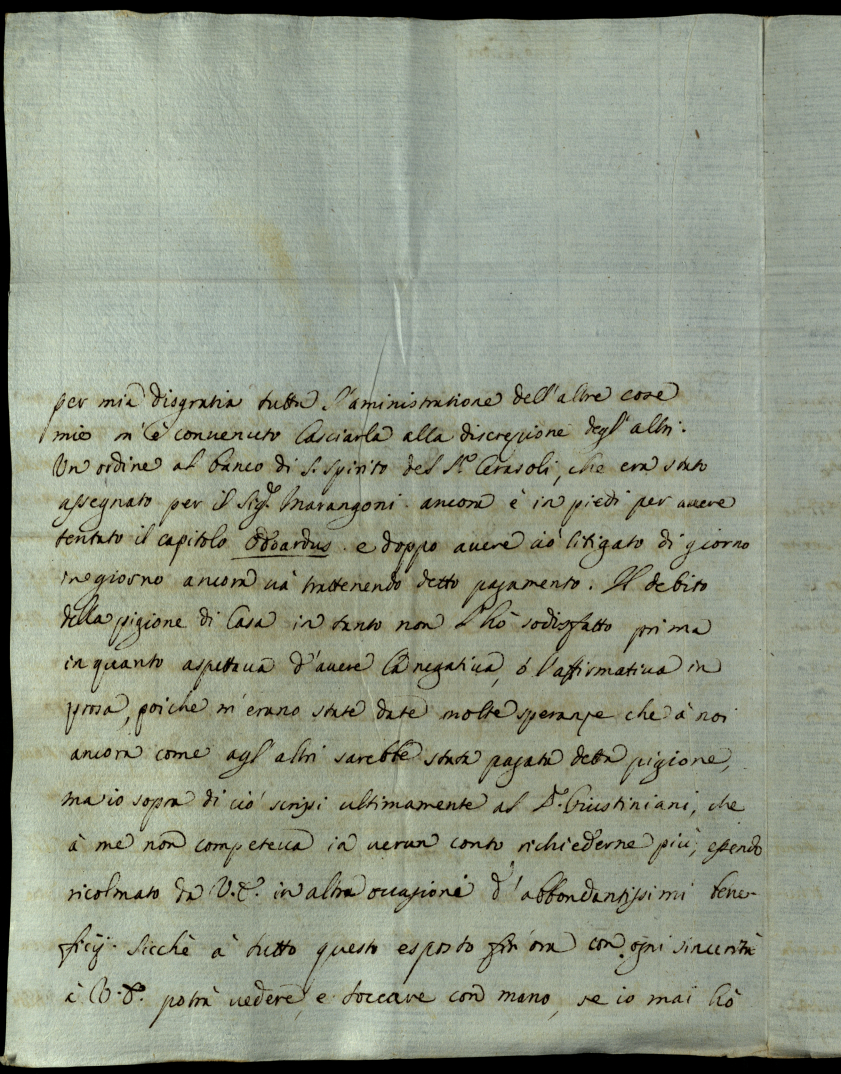 per mia disgratia tutta l'aministratione dell'altre cose
mie m'è convenuto lasciarla alla discrezione degl'altri.
Un ordine al banco di S. Spirito del Sr. Cerasoli, che era stato
assegnato per il Sigr. Marangoni. ancora è in piedi per avere
tentato il capitolo Odoardus. e doppo avere ciò litigato di giorno
in giorno ancora và trattenendo detto pagamento. Il debito
della pigione di Casa in tanto non l'hò sodisfatto prima
in quanto aspettava d'avere la negativa, ò l'affirmativa in
prosa, poiche m'erano state date molte speranze che à noi
ancora come agl'altri sarebbe stata pagata detta pigione,
ma io sopra di ciò scrissi ultimamente al Giustiniani, che
à me non competeva in verun conto richiederne più, essendo
ricolmato da V.E. in altra occasione d'abbondantissimi bene-
ficij. Sicchè à tutto questo esposto fin'ora con ogni sincerità
à V.E. potrà vedere, e toccare con mano, se io mai hò